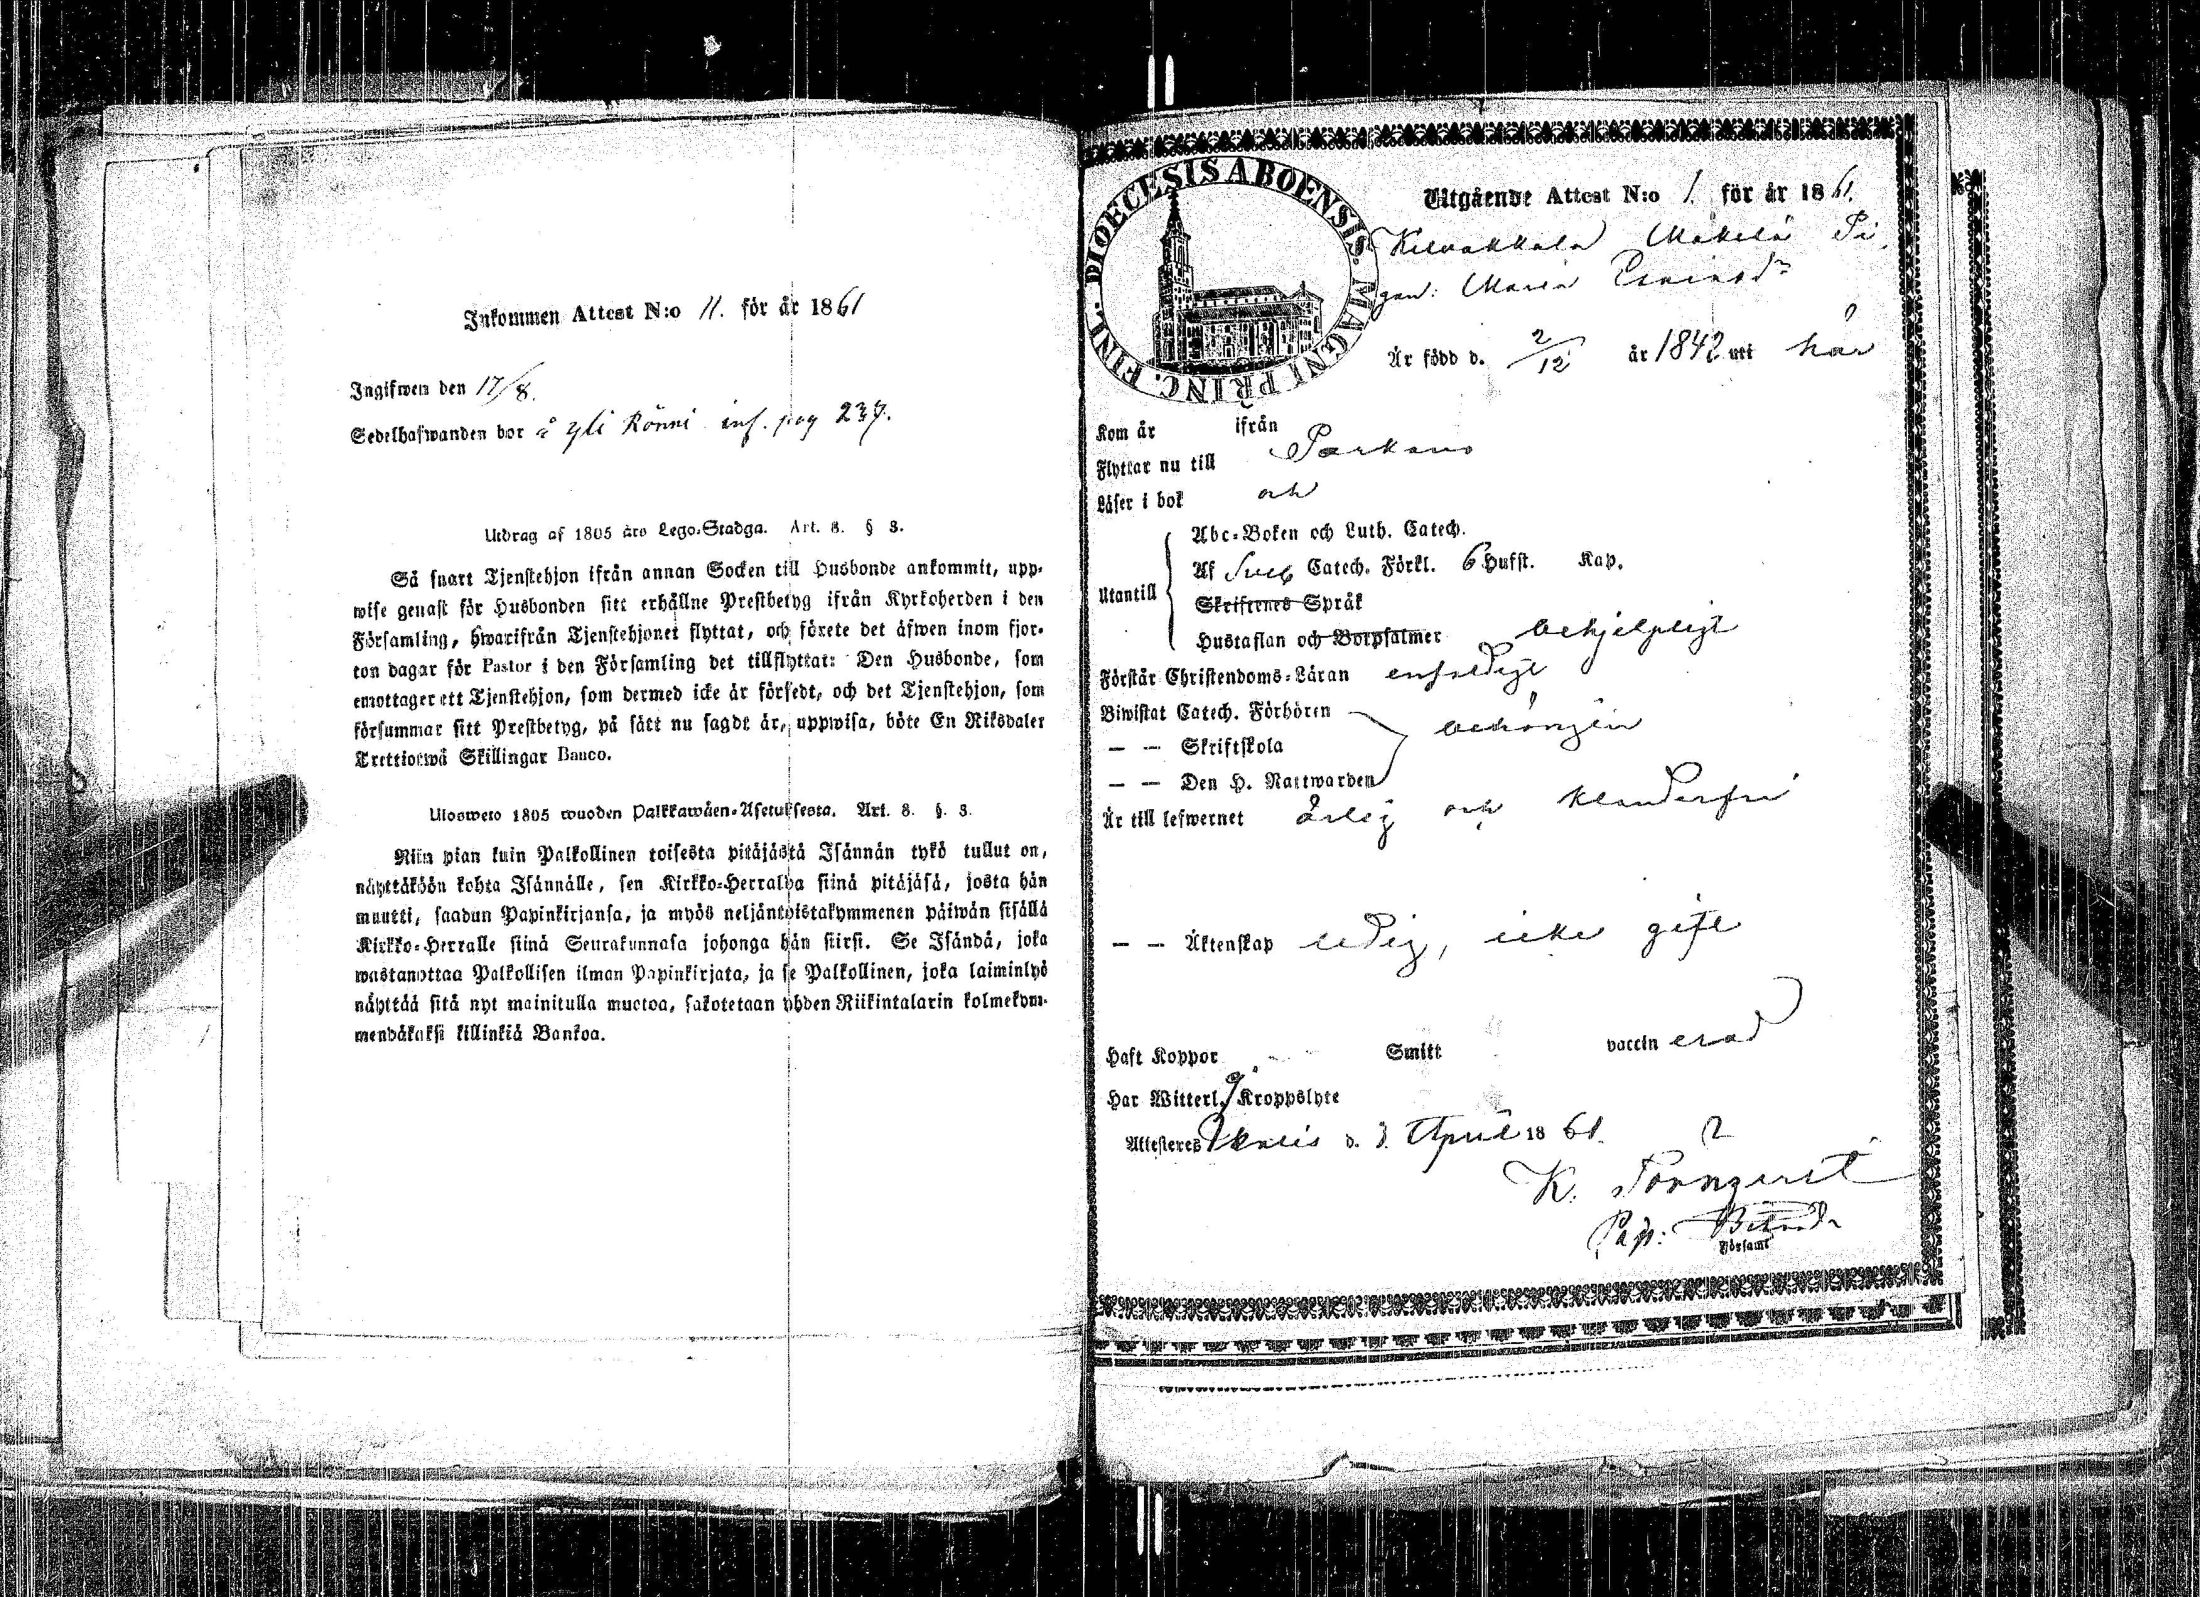 Inkommen Attest N:o 11. för år 1861
Ingifwen den 17/8.
Sedelhafwanden bor å Yli Rönni inf. pag 237.
Utdrag af 1805 års Lego-Stadga. Art. 8. § 3.
Så snart Tjenstehjon ifrån annan Socken till Husbonde ankommit, upp-
wise genast för Husbonden sitt erhållne Prestbetyg ifrån Kyrkoherden i den
Församling, hwarifrån Tjenstehjonet flyttat, och förete det äfwen inom fjor-
ton dagar för Pastor i den Församling det tillflyttat: Den Husbonde, som
emottager ett Tjenstehjon, som dermed icke är försedt, och det Tjenstehjon, som
försummar sitt Prestbetyg, på sätt nu sagdt är, uppwisa, böte En Riksdaler
Trettiotwå Skillingar Banco.
Ulosweto 1805 wuoden Palkkawäen-Asetuksesta. Art. 8. §. 3.
Niin pian kuin Palkollinen toisesta pitäjästä Isännän tykö tullut on,
näyttäköön kohta Isännälle, sen Kirkko-Herralda siinä pitäjäsä, josta hän
muutti, saadun Papinkirjansa, ja myös neljäntoistakymmenen päiwän sisällä
Kirkko-Herralle siinä Seurakunnasa johonga hän siirsi. Se Isändä, joka
wastanottaa Palkollisen ilman Papinkirjata, ja se Palkollinen, joka laiminlyö
näyttää sitä nyt mainitulla muotoa, sakotetaan yhden Riikintalarin kolmekym-
mendäkaksi killinkiä Bankoa.
DIOECESIS ABOENSIS. MAGNI PRINC. FINL.
Utgående Attest N:o 1. för år 1861.
Kilvakkala Mäkelä Pi
gan: Maria
Är född d. 2/12 år 1842 uti här
Kom år ifrån
Flyttar nu till Parkano
Läser i bok och
Utantill
Abc-Boken och Luth. Catech.
Af Sveb Catech. Förkl. 6 Hufst. Kap.
Skriftenes Språk
Hustaflan och Botpsalmer behjelpligt
Förstår Christendoms-Läran enfaldigt
Biwistat Catech. Förhören
— — Skriftskola behörigen
— — Den H. Nattwarden
Är till lefwernet ärlig och klanderfri
— — Äktenskap ledig, icke gift
Haft Koppor Smitt vaccin erad
Har Witterl. Kroppslyte
Attesteras Ikalis d. 3. April 1861.
K.
Församl